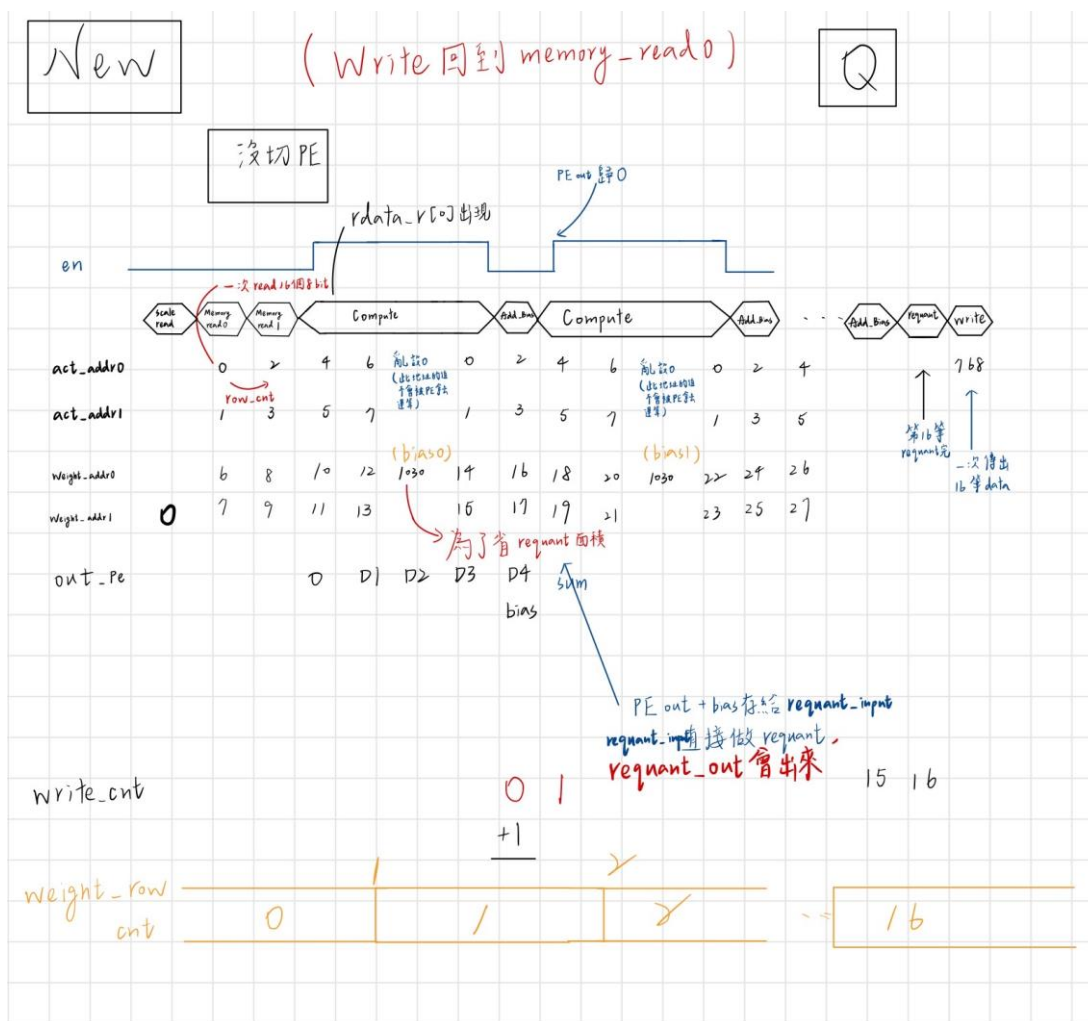 New
(Write 回到 memory_read0)
Q
沒切 PE
PE out 歸 0
rdata_r[0] 出現
en
一次 read 16個 8 bit
scale read
Memory read 0
Memory read 1
Compute
Add_Bias
Compute
Add_Bias
...
Add_Bias
requant
write
act_addr0
0 2 4 6 亂設0 0 2 4 6 亂設0 0 2 4 768
row_cnt
act_addr1
1 3 5 7 1 3 5 7 1 3 5
第16筆
requant完
一次傳出
16筆data
(bias0)
(bias1)
Weight_addr0
6 8 10 12 1030 14 16 18 20 1030 22 24 26
Weight_addr1
0 7 9 11 13 15 17 19 21 23 25 27
為了省 requant 面積
out_Pe
0 D1 D2 D3 D4 sum
bias
PE out + bias 存給 requant_input
requant_input 直接做 requant,
requant_out 會出來
write_cnt
0 1 15 16
+1
1 2
weight_row
cnt
0 1 2 ... 16